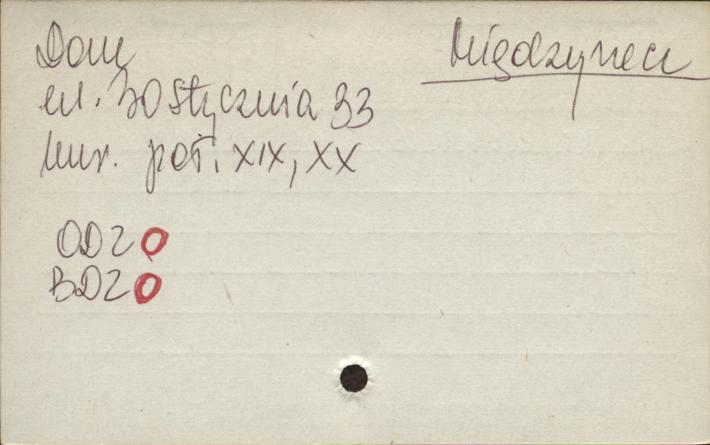 Dom Międzyrzecz
ul. 30 Stycznia 33
mur. poł. XIX, XX
ODZ O
BDZ O